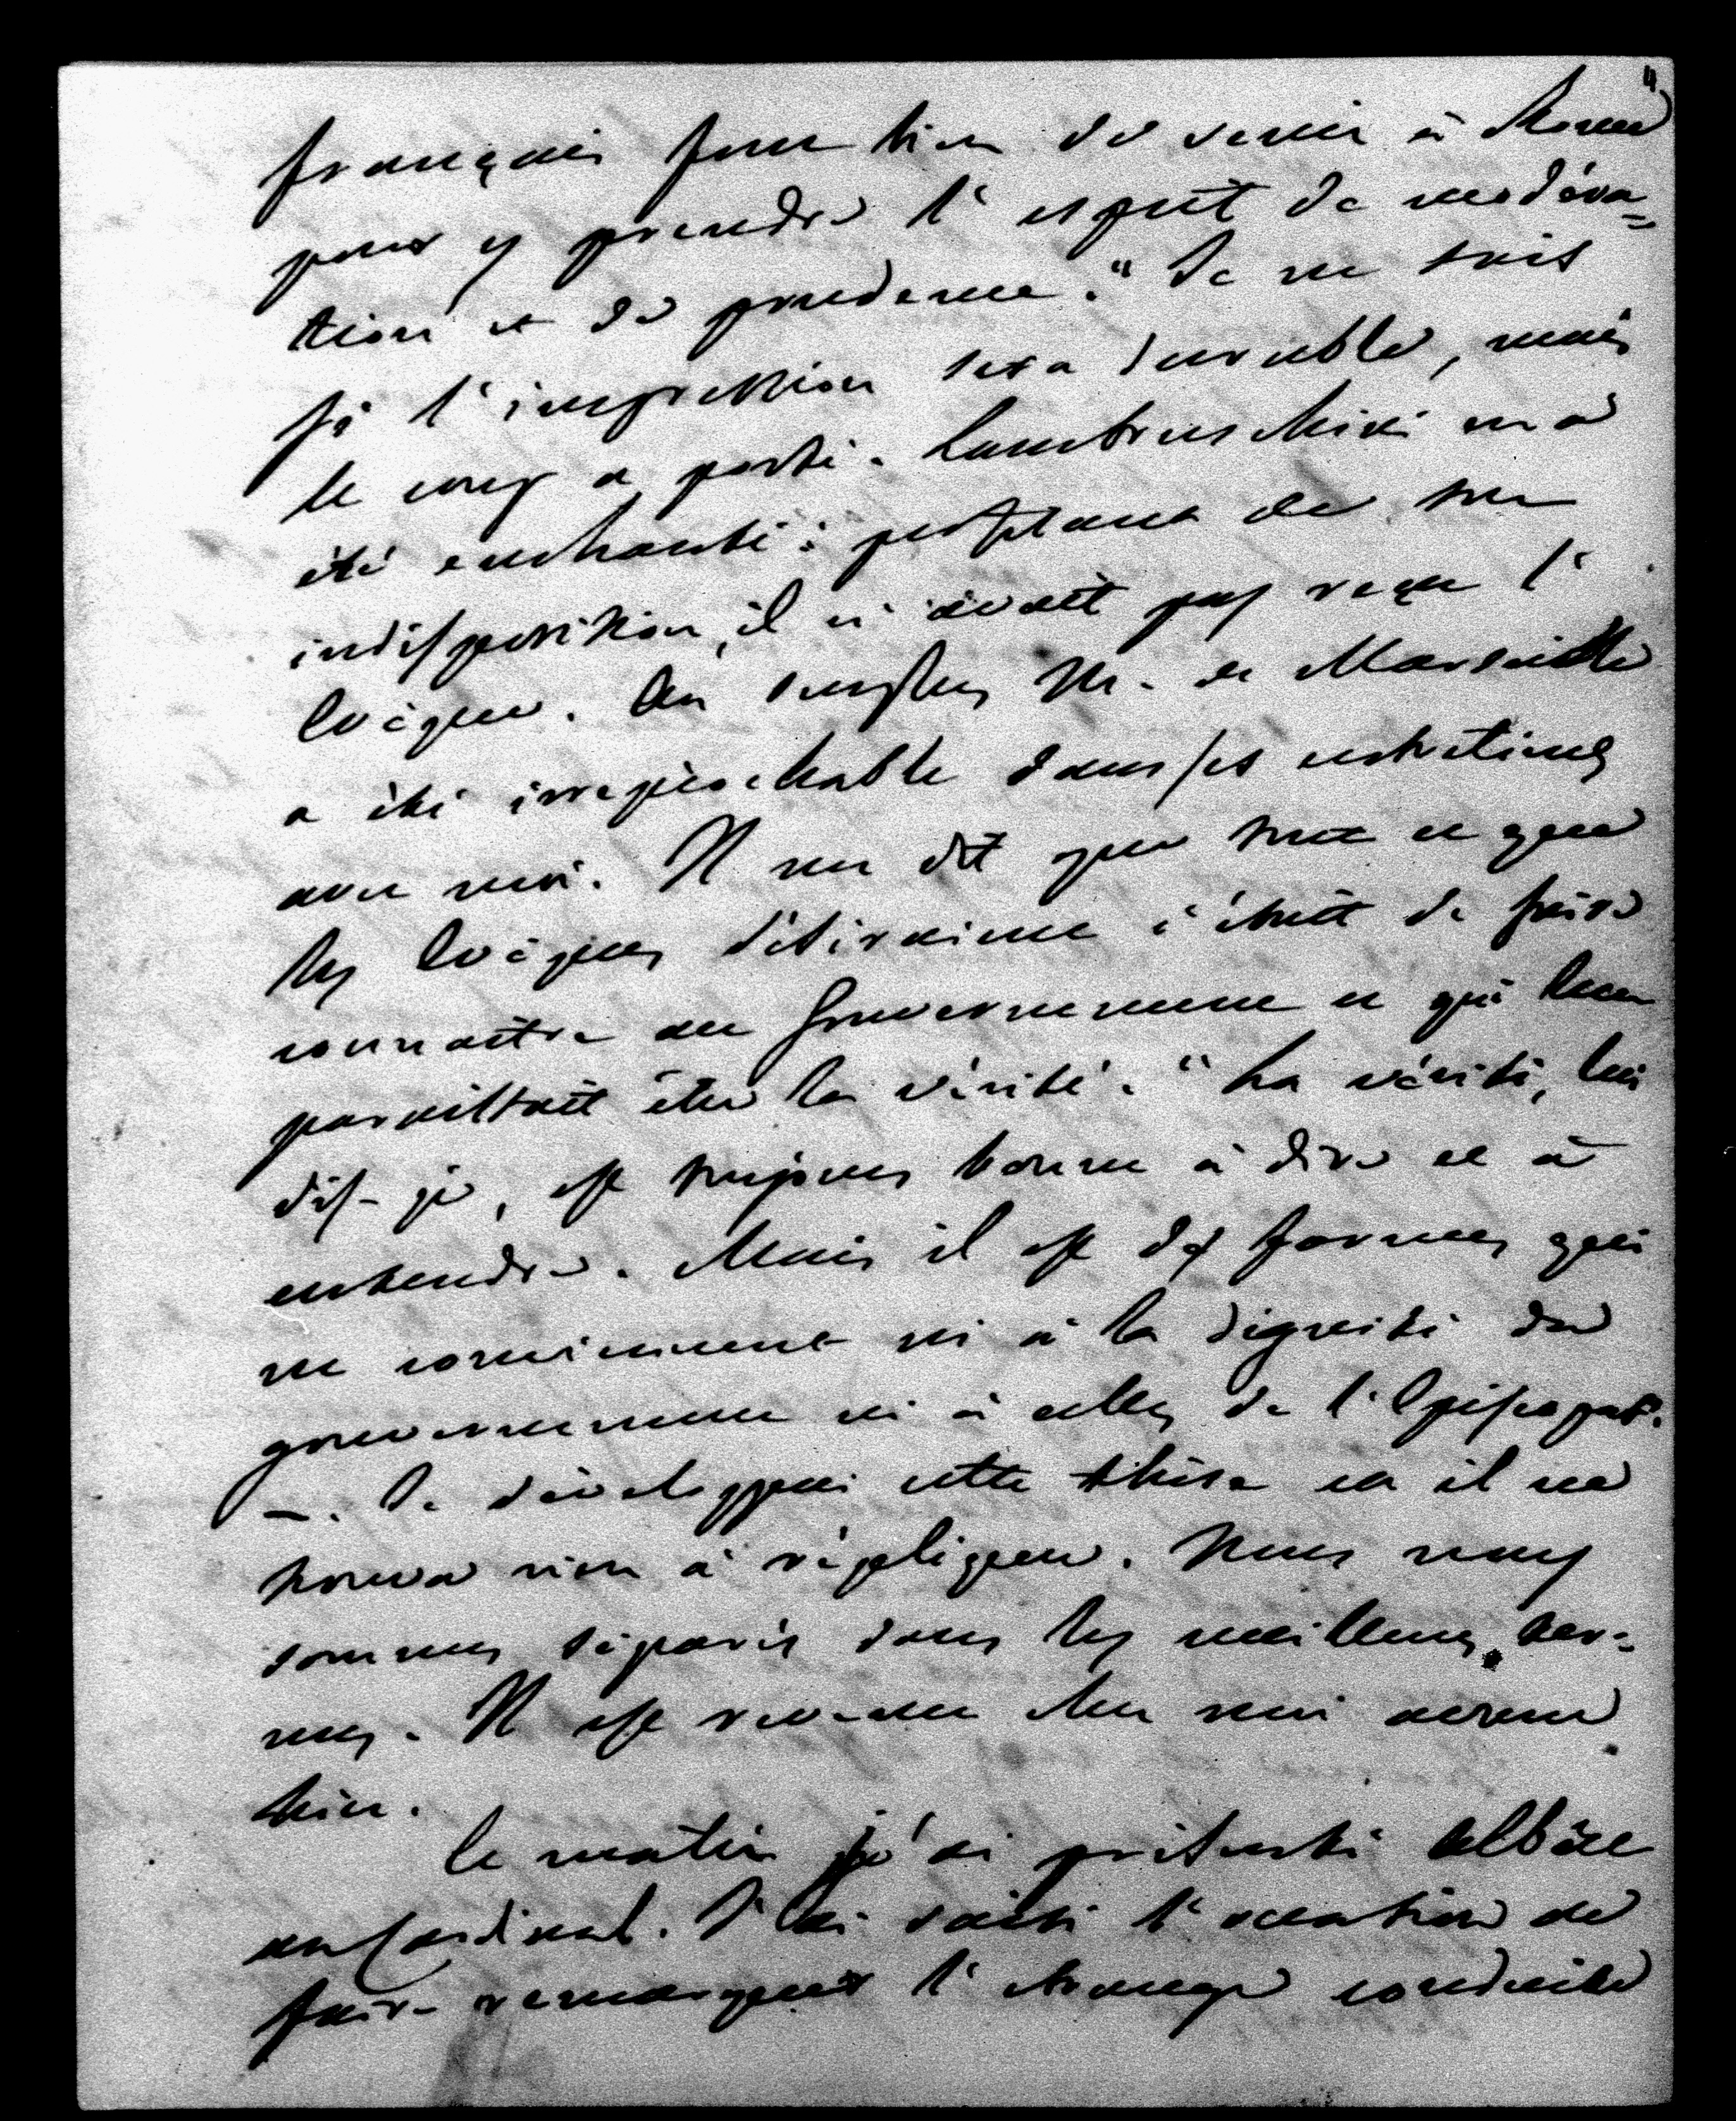 français font bien de venir à Rome
pour y prendre l'esprit de modéra=
tion et de prudence." Je ne sais
si l'impression sera durable, mais
le coup a porté. Lambruschini m'a
été enchanté: prétextant de son
indisposition, il n'avait pas reçu l'
Evêque. Au surplus M. de Marseille
a été irréprochable dans ses entretiens
avec moi. Il me dit que tout ce que
les Evêques désiraient c'était de faire
connaître au Gouvernement ce qui leur
paraissait être la vérité. "La vérité, lui
dis-je, est toujours bonne à dire et à
entendre. Mais il est des formes qui
ne conviennent ni à la dignité du
gouvernement ni à celle de l'Episcopat".
—. Je développai cette thèse et il ne
trouva rien à répliquer. Nous nous
sommes séparés dans les meilleurs ter=
mes. Il est revenu chez moi avant
hier.
Ce matin j'ai présenté Albert
au Cardinal. J'ai saisi l'occasion de
faire remarquer l'étrange conduite